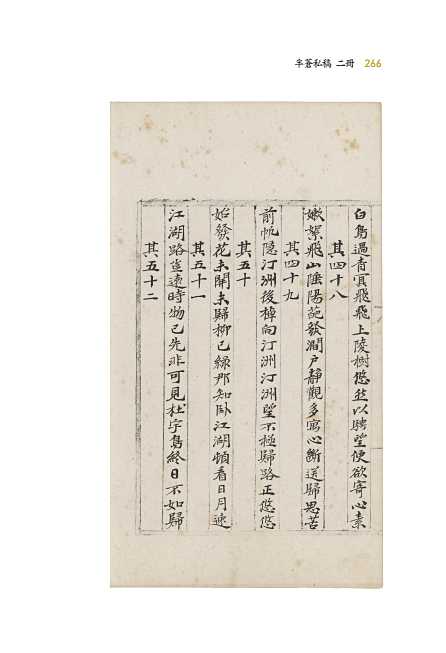 半蒼私稿 二冊 266
白鳥過青冥飛飛上陵樹悠然以騁望便欲寄心素
其四十八
嫩絮飛山陰陽葩發澗戶靜觀多寓心斷送歸思苦
其四十九
前帆隱汀洲後棹向汀洲汀洲望不極歸路正悠悠
其五十
始發花未開未歸柳已綠那知臥江湖頓看日月速
其五十一
江湖路豈遠時物已先非可見杜宇鳥終日不如歸
其五十二